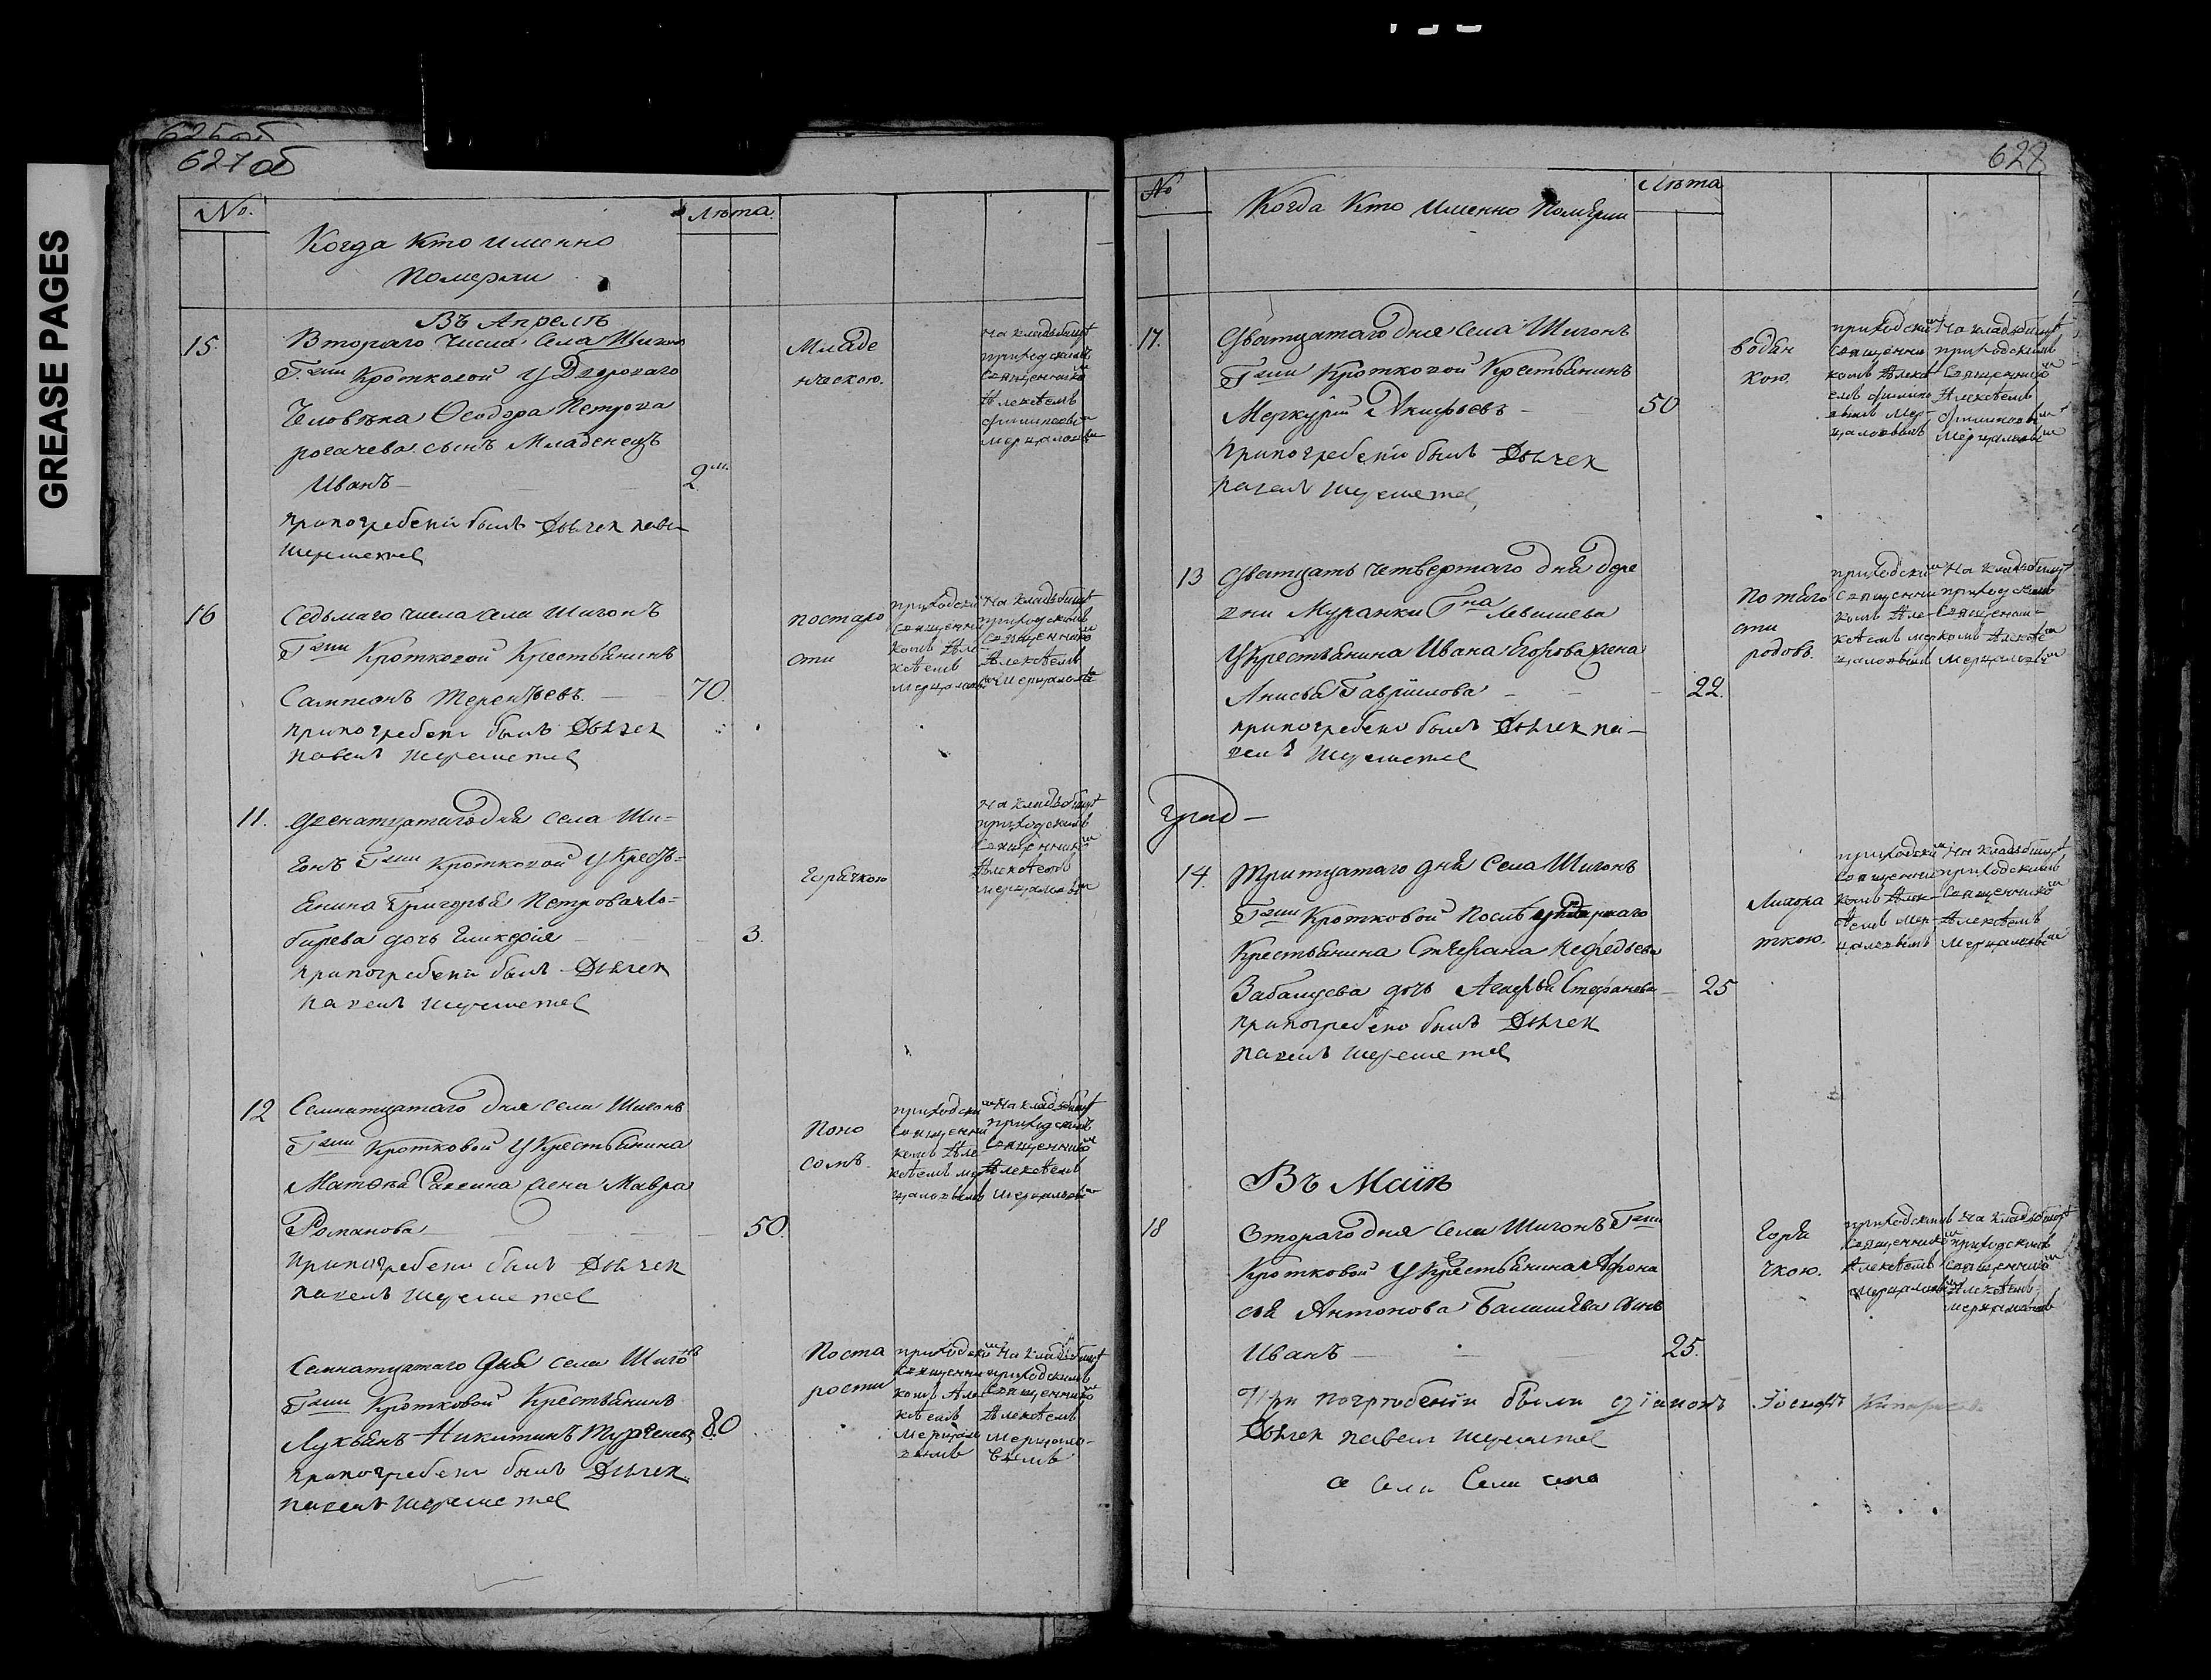 GREASE PAGES
627 об
No.
Когда Кто именно
померли
Лѣта.
Въ Апрелѣ
15.
Втораго числа села Шигонъ
Г.жи Кротковой у Двороваго
Человѣка Ѳеодора Петрова
рогачева сынъ Младенецъ
Иванъ
2 м.
при погребении былъ Дьячек
Шереметев
Младе
нческою.
На кладьбищѣ
приходскимъ
Священником
Алексѣемъ
Мерцаловым
16
Седьмаго числа села Шигонъ
Г.жи Кротковой Крестьянинъ
Сампсонъ Терентьевъ.
70.
при погребени былъ Дьячек
павелъ Шереметев
постаро
сти
приходским
Священни
комъ Але
ксѣемъ
Мерцаловым
На кладьбищѣ
приходскимъ
Священником
Алексѣемъ
Мерцаловым
11.
Двенатцатаго дня села Ши=
гонъ Г.жи Кротковой у Кресть=
янина Григорья Петрова
дочь Гликерія
3.
при погребени былъ Дьячек
павелъ Шереметев
Горячкою
На кладьбищѣ
приходскимъ
Священником
Алексѣемъ
Мерцаловым
12
Семнатцатаго дня села Шигонъ
Г.жи Кротковой у Крестьянина
Матвѣя жена Мавра
Романова
50.
при погребени былъ Дьячек
павелъ Шереметев
Поно
сомъ.
приходским
Священни
комъ Але
ксѣемъ Мер
цаловымъ
На кладьбищѣ
приходскимъ
Священником
Алексѣемъ
Мерцаловым
Семнатцатаго дня села Шигонъ
Г.жи Кротковой Крестьянинъ
Лукьянъ Никитинъ
80
при погребени былъ Дьячек
павелъ Шереметев
Поста
рости
приходским
Священни
комъ Але
ксѣемъ
Мерцало
вымъ
На кладьбищѣ
приходскимъ
Священником
Алексѣемъ
Мерцало-
вымъ
628
No
Когда Кто именно Померли
Лѣта
17.
Дватцатаго дня села Шигонъ
Г.жи Кротковой Крестьянинъ
Меркурій
50
при погребении былъ Дьячек
павелъ Шереметев
водян
кою.
приходским
Священни
комъ Алекс
Мер-
цаловымъ
На кладьбищѣ
приходскимъ
Священником
Алексѣемъ
Мерцаловым
13
Дватцать четвертаго дня дере
вни Муранки Г.на Левашева
у Крестьянина Ивана Егорова жена
Анисья Гаврилова
22.
при погребени былъ Дьячек па-
велъ Шереметев
По тяго
сти
родовъ.
приходским
Священни
комъ Але-
ксѣемъ Мер
цаловым
На кладьбищѣ
приходскимъ
Священни-
комъ Алексѣе
Мерцаловым
14.
Тритцатаго дня Села Шигонъ
Г.жи Кротковой После
Крестьянина Стефана Нефедьева
дочь Стефанова
25
при погребени былъ Дьячек
павелъ Шереметев
Лихора
ткою.
приходским
Священни
комъ Алек
сѣемъ Мер-
цаловымъ
На кладьбищѣ
приходскимъ
Священником
Алексѣемъ
Мерцаловым
Въ Маiѣ
18
Втораго дня села Шигонъ Г.жи
Кротковой у Крестьянина Афона
сья Антонова сынъ
Иванъ
25.
При погрѣбеніи были діаконъ Іосифъ
Дьячек павелъ Шереметев
Горя
чкою.
приходскимъ
Священником
Алексѣемъ
Мерцаловым
На кладьбищѣ
приходскимъ
Священником
Алексѣемъ
Мерцаловымъ